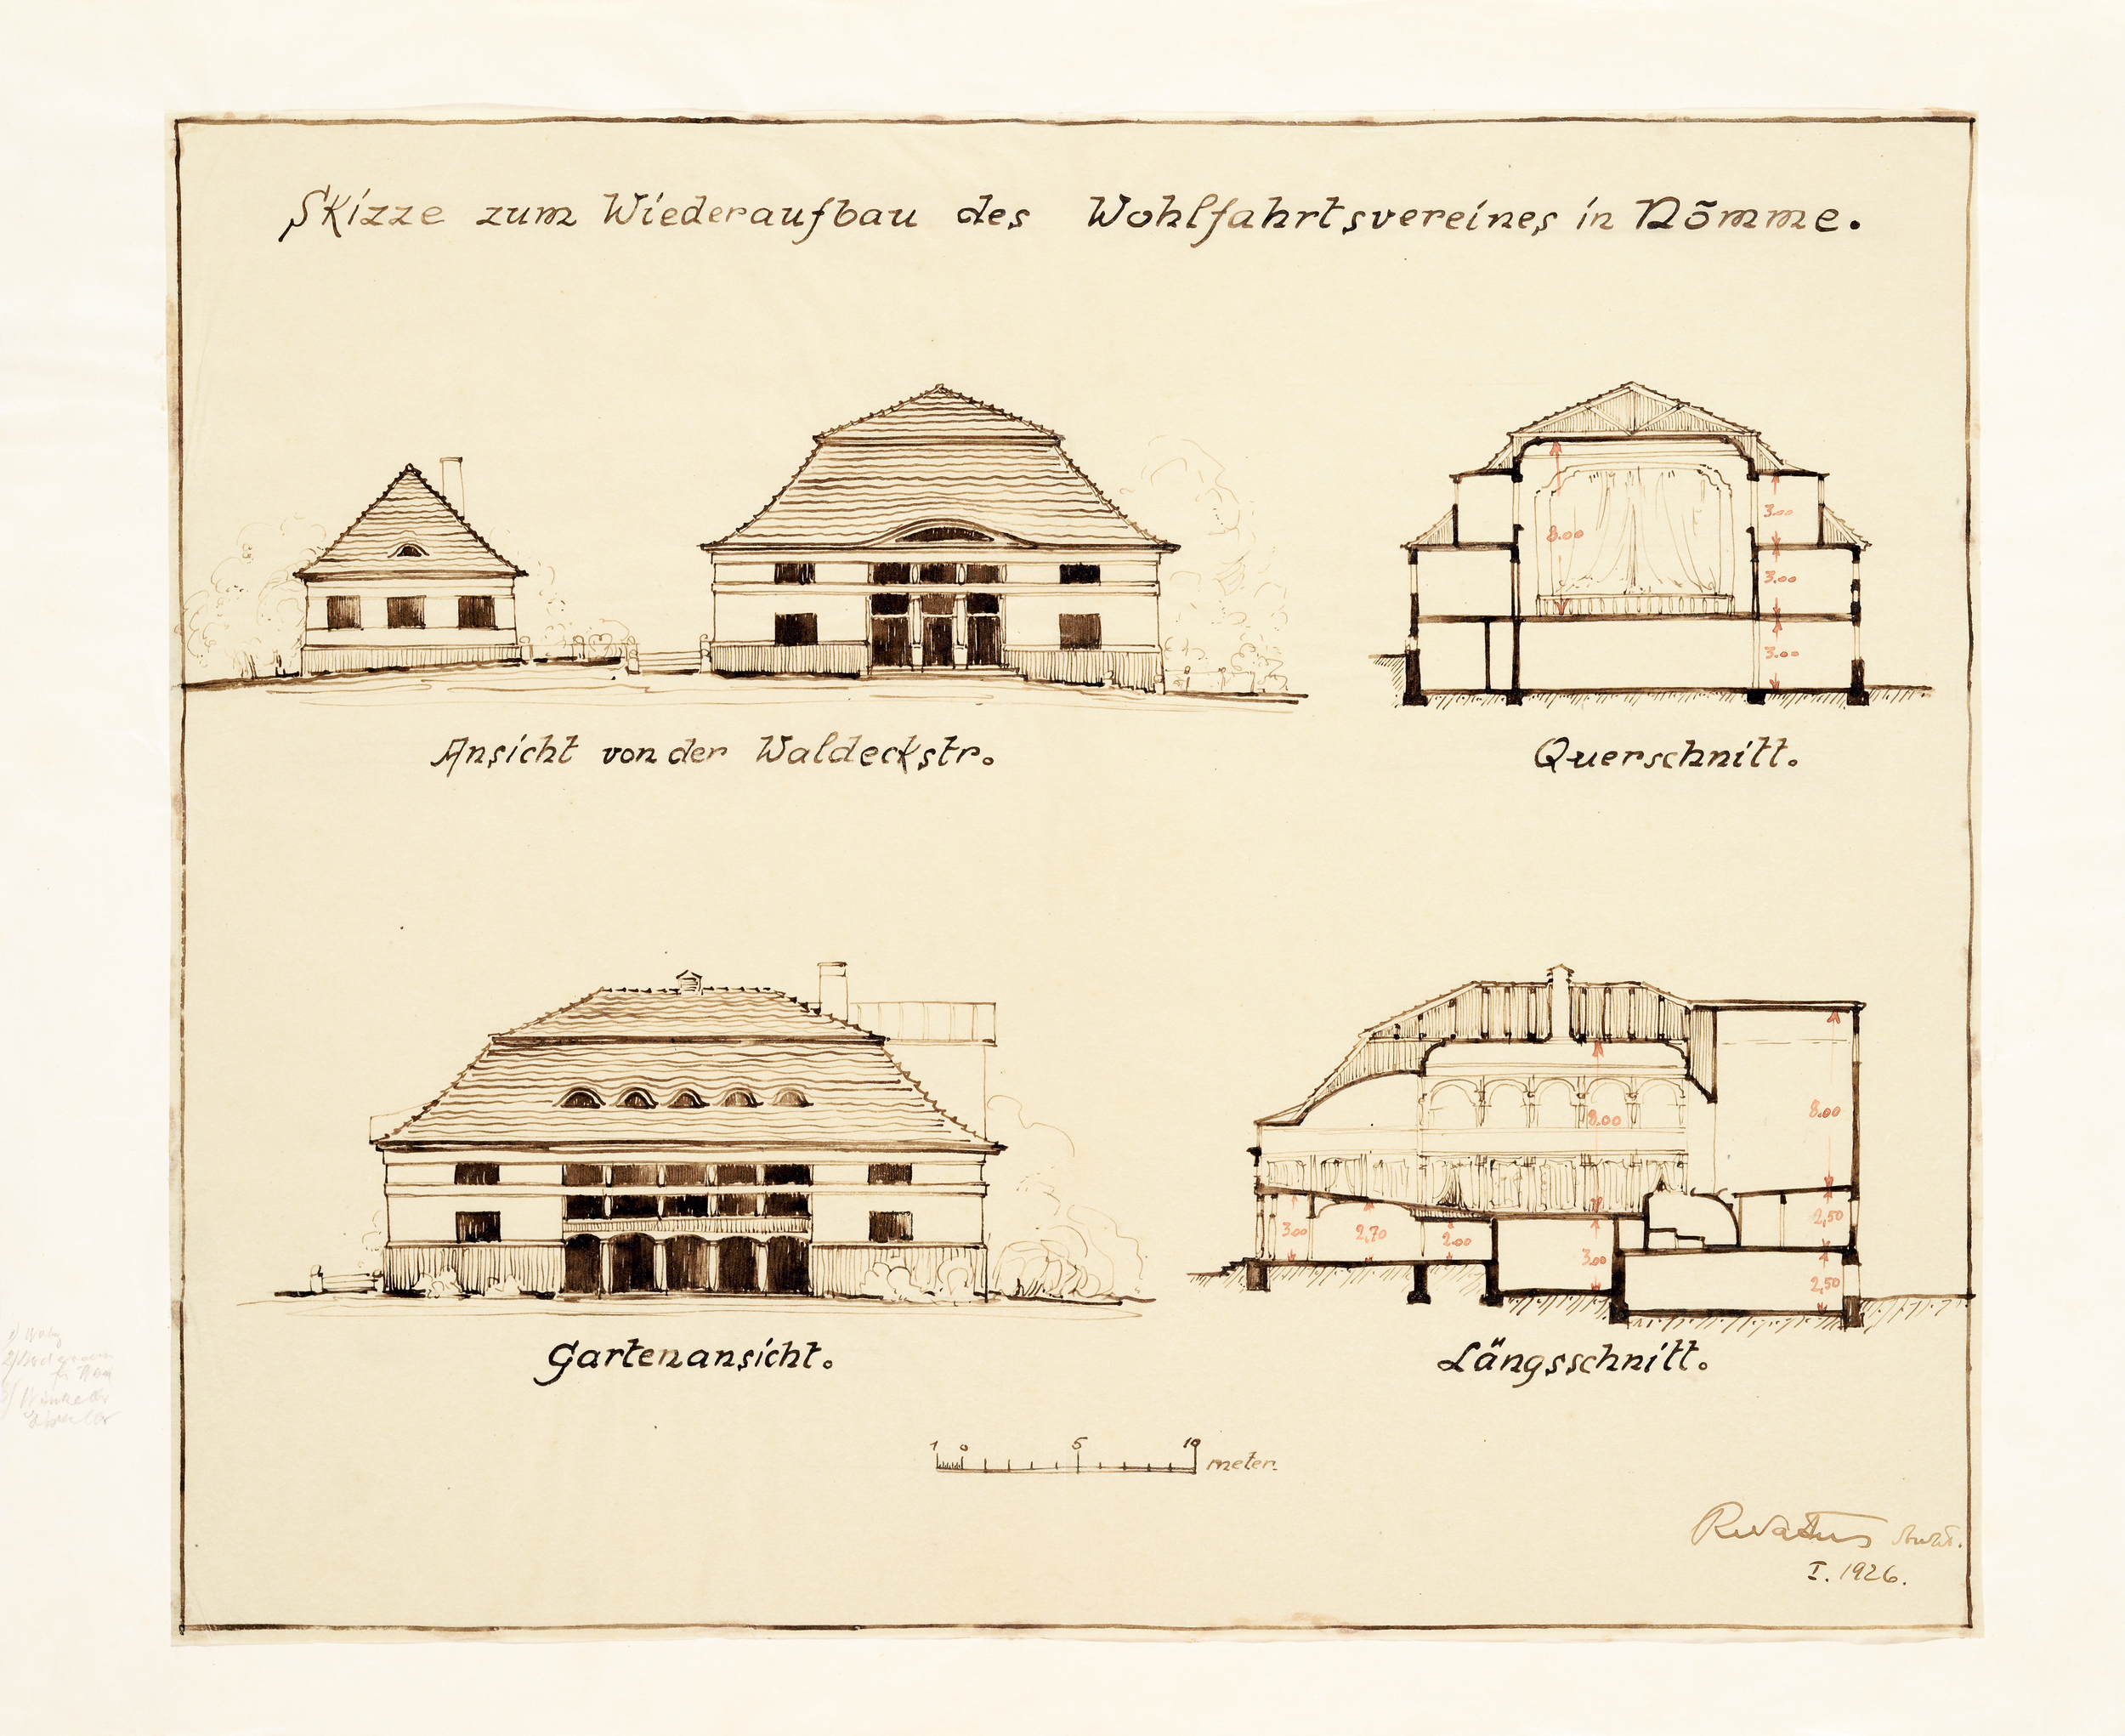 Skizze zum Wiederaufbau des Wohlfahrtsvereines in Nõmme.
8.00
3.00
3.00
3.00
Ansicht von der Waldeckstr.
Querschnitt.
8.00
8.00
3.00
2,70
2.00
3.00
2,50
2,50
Gartenansicht.
Längsschnitt.
1 0 5 10 meter.
I. 1926.